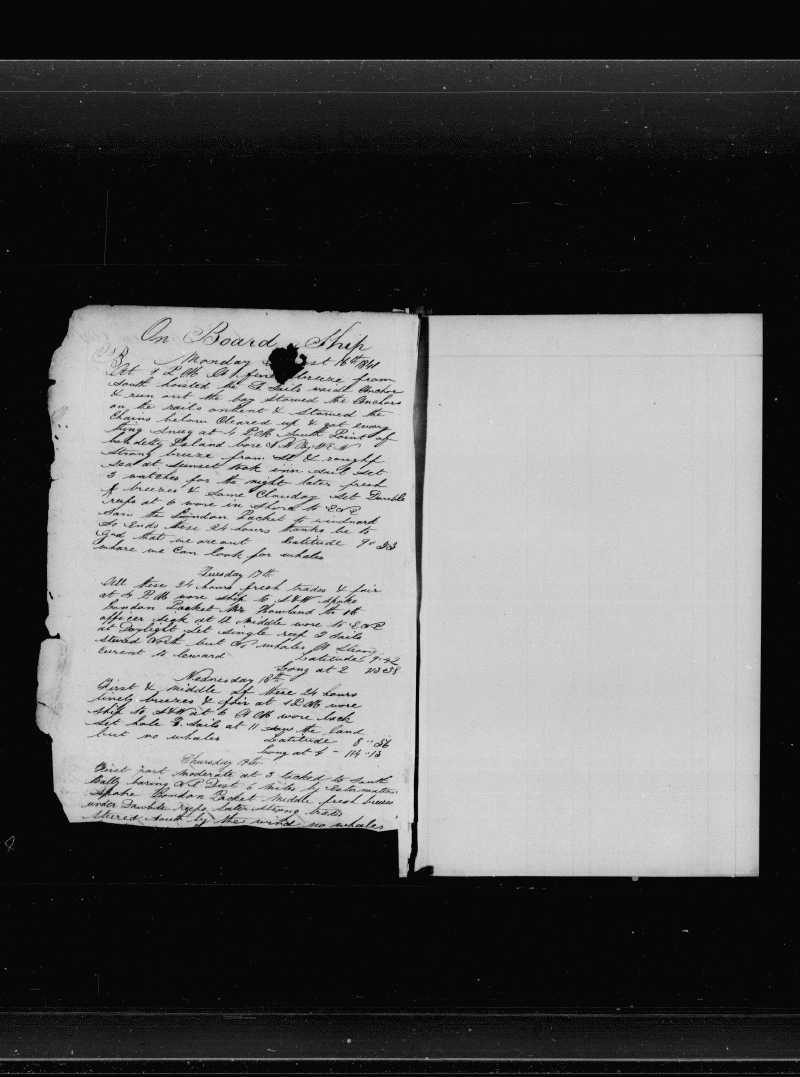 On Board Ship
Monday August 16th 1841
At 1 P M A fine breeze from
South hoisted the T Sails waid Anchor
& run out the bay Stowed the Anchors
on the rails onbent & Stowed the
Chains below Cleared up & got every
thing Snug at 4 P M South Point of
Island bore S W By W
Strong breeze from SE & rough
sea at sunset took inn sail Set
3 watches for the night later fresh
breezes & Some Clouday Set Double
reefs at 6 wore in Shore to ENE
Saw the London Packet to windward
So Ends these 24 hours thanks be to
God that we are out Latitude 9" 33
whare we Can look for whales
Tuesday 17th
All these 24 hours fresh trades & fair
at 4 P M wore ship to SSW spoke
London Packet Mr Howland the
officer sick at 12 Middle wore to ENE
at Daylight Set single reef T Sails
stered North but No whales A Strong
curent to leward Latitude 9-42
Long at 2 113 38
Wednesday 18th
First & middle of these 24 hours
lively breezes & fair at 1 P M wore
ship to SSW at 6 A M wore back
Set hole T. Sails at 11 saw the land
but no whales Latitude 8 " 56
Long at 4 - 114 " 13
Thursday 19th
First part moderate at 3 tacked to South
Bally baring N E Dist 6 miles by
Spoke London Packet Middle fresh breeses
under Dawble reefs later strong trades
Stered South by the wind no whales